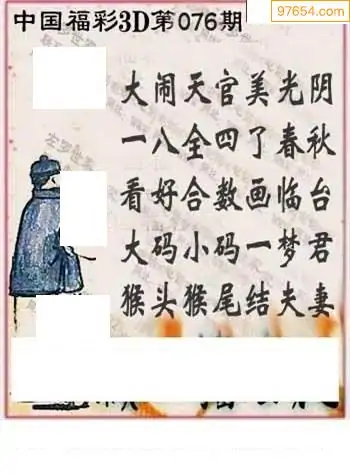 97654.com
中国福彩3D第076期
大闹天官美光阴
一八全四了春秋
看好合数画临台
大码小码一梦君
猴头猴尾结夫妻